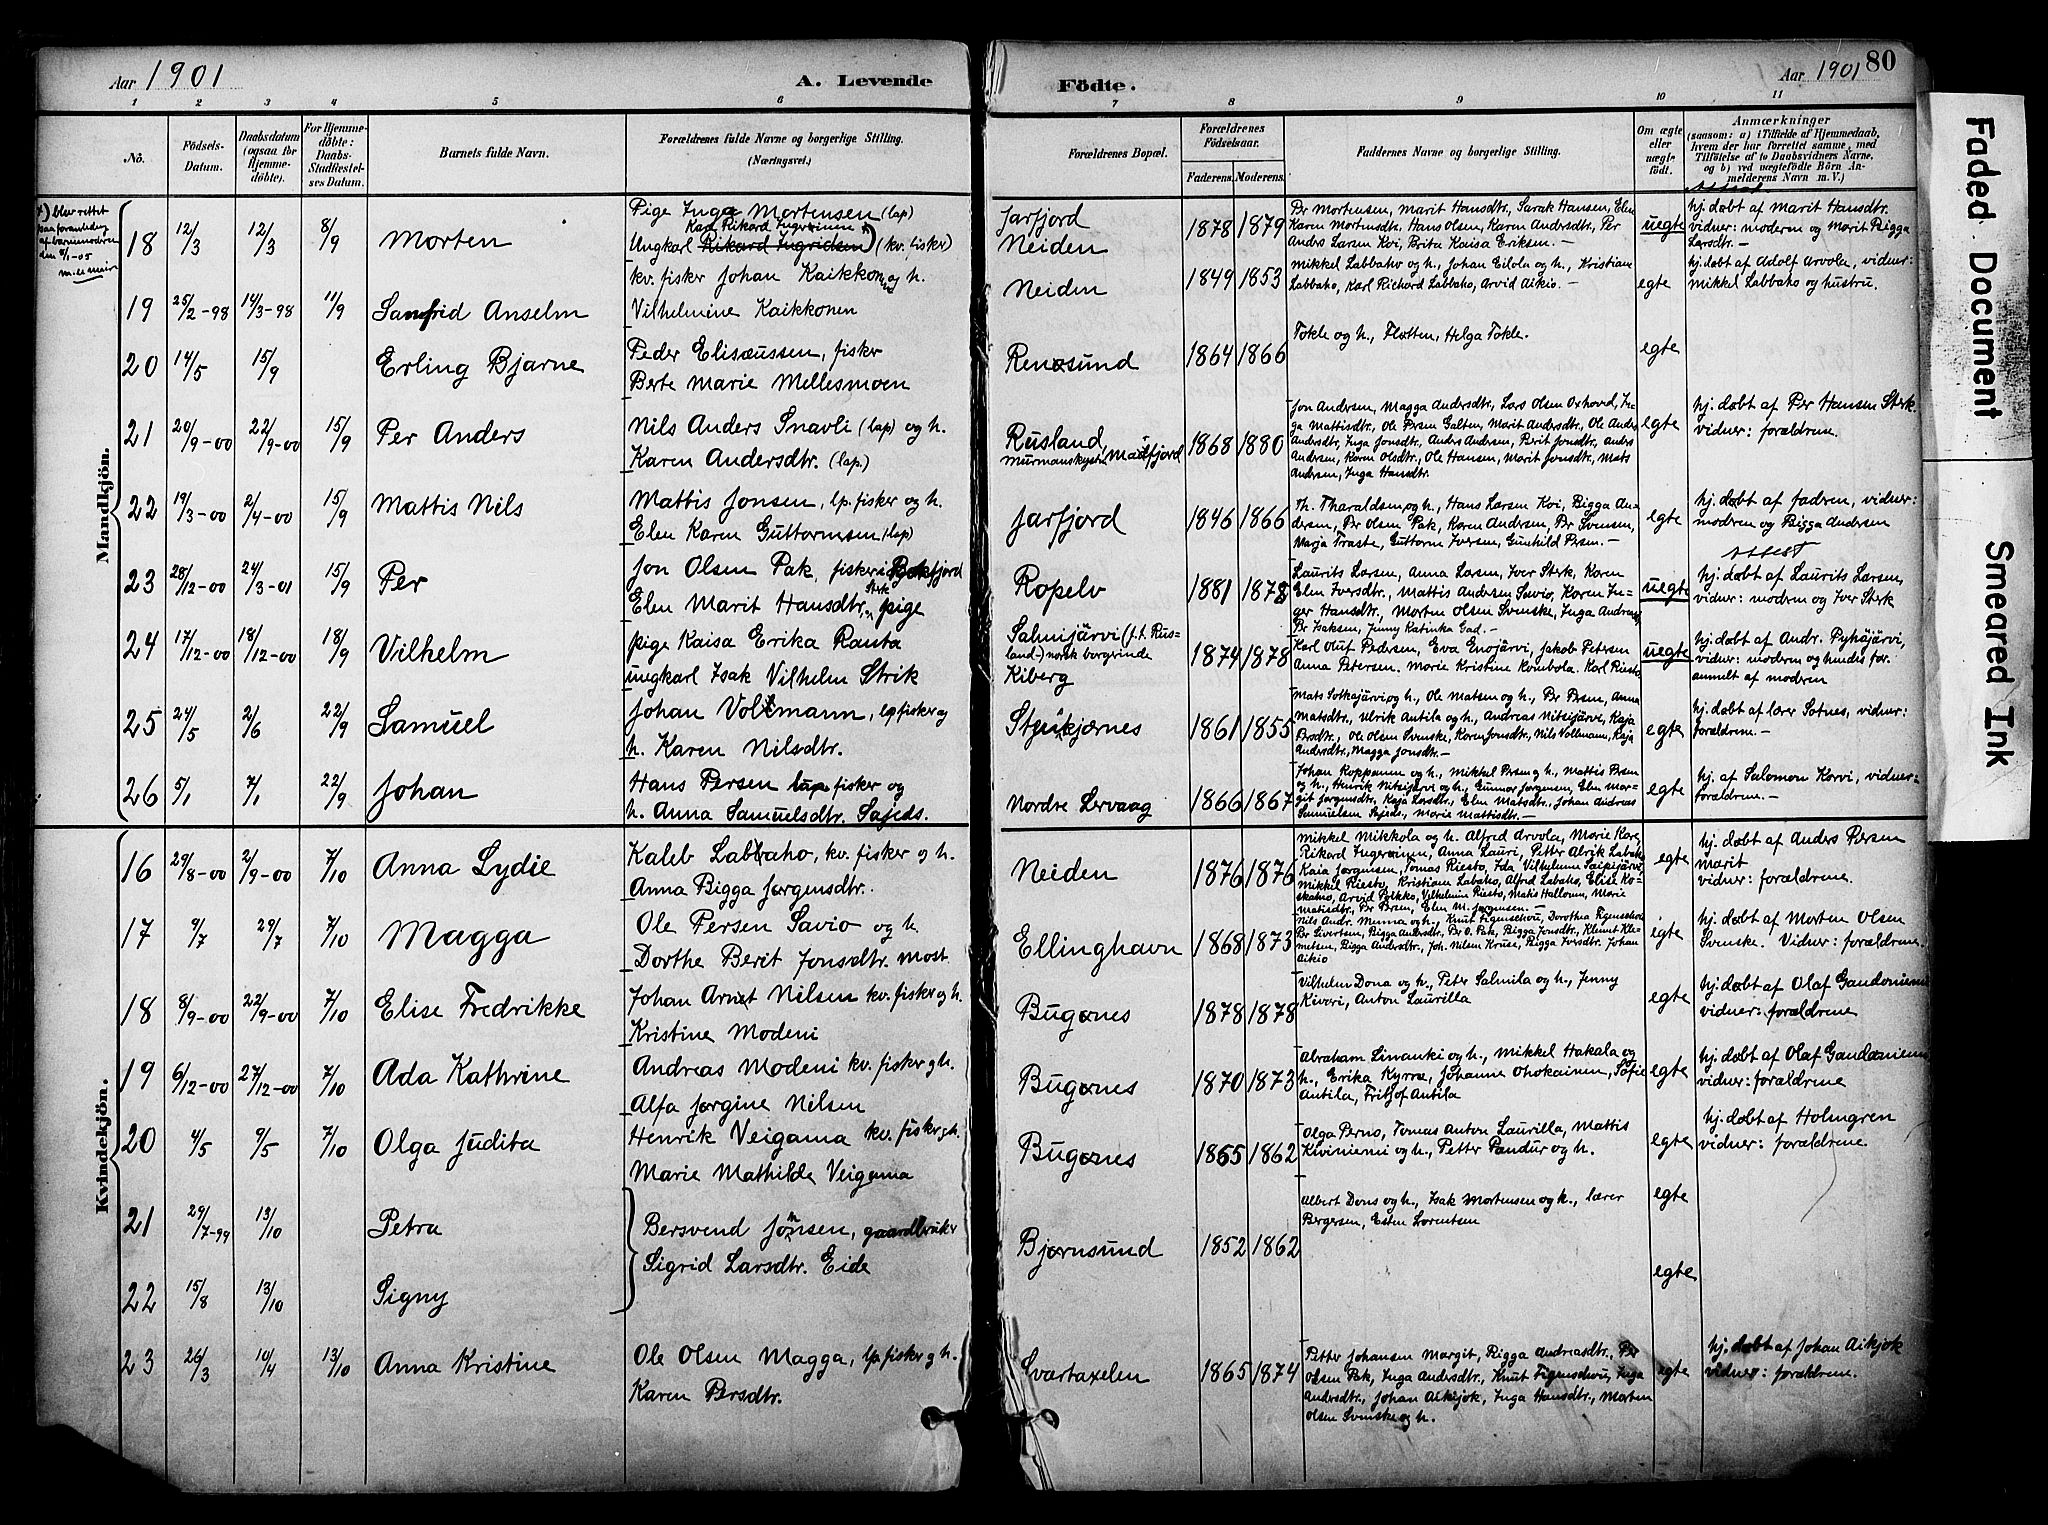 Aar 1901
A. Levende
Födte.
Aar 1901
80
1 2 3 4 5 6 7 8 9 10 11
No.
Födsels-
Datum.
Daabsdatum
(ogsaa for
Hjemme-
döbte).
For Hjemme-
döbte:
Daabs-
Stadfæstel-
ses Datum.
Barnets fulde Navn.
Forældrenes fulde Navne og borgerlige Stilling.
(Næringsvei.)
Forældrenes Bopæl.
Forældrenes
Födselsaar.
Faderens. Moderens.
Faddernes Navne og borgerlige Stilling.
Om ægte
eller
uægte
födt.
Anmærkninger
(saasom: a) i Tilfælde af Hjemmedaab,
hvem der har forrettet samme, med
Tilföielse af to Daabsvidners Navne,
og b) ved uægtefödte Börn An-
melderens Navn m. V.)
Mandkjön.
18 12/3 12/3 8/9 Morten
Pige Inga Mortensen (lap)
Ungkarl Rikard Ingridsen (kv. fisker)
Jarfjord
Neiden
1878 1879
Pr Mortensen, Marit Hansdtr., Sarak Hansen, Elen
Karen Mortensdtr., Hans Olsen, Karen Andersdtr., Per
Anders Larsen Koi, Brita Kaisa Eriksen.—
uegte
hj. døbt af Marit Hansdtr.
vidner: moderen og Marit Bigga
Larsdtr.—
19 25/2-98 14/3-98 11/9 Sanfrid Anselm
kv. fisker Johan Kaikkonen og h.
Vilhelmine Kaikkonen
Neiden
1849 1853
Mikkel Labbaho og h., Johan Eilola og h., Kristian
Labbaho, Karl Richard Labbaho, Arvid Aikio.—
egte
hj. døbt af Adolf Arvola, vidner:
Mikkel Labbaho og hustru.
20 14/5 15/9 Erling Bjarne
Peder Elisæussen, fisker
Berte Marie Mellesmoen
Renøsund
1864 1866
Tokle og h., Flotten, Helga Tokle.
egte
21 20/9-00 22/9-00 15/9 Per Anders
Nils Anders Snavli (lap) og h.
Karen Andersdtr. (lap.)
Rusland,
1868 1880
Jon Andersen, Magga Andersdtr., Lars Olsen Oxhoved, In-
ga Mattisdtr., Ole Persen Galten, Marit Andersdtr., Ole Anders
Andersdtr., Inga Jonsdtr., Anders Andersen, Berit Jonsdtr., Anders
Andersen, Karen Olsdtr., Ole Hansen, Marit Jonsdtr., Mats
Andersen, Inga Hansdtr.
egte
hj. døbt af Per Hansen Sterk.
vidner: forældrene.
22 19/3-00 2/4-00 15/9 Mattis Nils
Mattis Jonsen, lp. fisker og h.
Elen Karen Guttormsen (lap)
Jarfjord
1846 1866
Th. Tharaldsen og h., Hans Larsen Koi, Bigga An-
dersen, Per Olsen Pak, Karen Andersen, Per Svensen,
Marja Traste, Guttorm Iversen, Gunhild Persen.—
egte
hj. døbt af fadren, vidner:
moderen og Bigga Andersen
23 28/12-00 24/3-01 15/9 Per
Jon Olsen Pak, fisker i Bøkfjord
Elen Marit Hansdtr. Sterk, pige
Ropelv
1881 1878
Laurits Larsen, Anna Larsen, Iver Sterk, Karen
Elen Iversdtr., Mattis Andersen Savio, Karen In-
ger Hansdtr., Morten Olsen Svenske, Inga Andersen
Pr Isaksen, Jenny Katinka Gad.—
uegte
attest
hj. døbt af Laurits Larsen,
vidner: moderen og Iver Sterk
24 17/12-00 18/12-00 18/9 Vilhelm
pige Kaisa Erika Ranta
ungkarl Isak Vilhelm Strik
Salmijärvi (f.t. Rus-
land-) norsk borgerinde
Kiberg
1874 1878
Karl Oluf Pedersen, Eva Enojärvi, Jakob Petersen
Anna Petersen, Marie Kristine Kombola. Karl Riesto
uegte
hj. døbt af Andr. Pyhäjärvi,
vidner: moderen og hendes for.
anmelt af moderen
25 24/5 2/6 22/9 Samuel
Johan Voltmann, lp fisker og
h. Karen Nilsdtr.
1861 1855
Mats Sotkajärvi og h., Ole Matsen og h., Per Persen, Anna
Matsdtr., Ulrik Antila og h., Andreas Nitsijärvi, Kaja
Brodtr., Ole Olsen Svenske, Karen Jonsdtr., Nils Vollmann, Kaja
Andersdtr., Magga Jonsdtr.—
egte
hj. døbt af lærer Sotnes, vidner:
forældrene.—
26 5/1 7/1 22/9 Johan
Hans Persen lap fisker og
h. Anna Samuelsdtr. Sajeds.
Nordre Lervaag
1866 1867
Johan Koppanen og h., Mikkel Persen og h., Mattis Persen
og h., Henrik Nitsijärvi og h., Gunnar Jørgensen, Elen Mar-
git Jørgensdtr., Kaja Larsdtr., Elen Matsdtr., Johan Andreas
Samuelsen Sajeds, Marie Mattisdtr.—
egte
hj. af Salomon Korvi, vidner:
forældrene.—
Kvindekjön.
16 29/8-00 2/9-00 7/10 Anna Lydie
Kaleb Labbaho, kv. fisker og h.
Anna Bigga Jørgensdtr.
Neiden
1876 1876
Mikkel Mikkola og h. Alfred Arvola, Marie Kare
Rikard Ingeroinen, Anna Lauri, Petter Alrik Labaho
Kaia Jørgensen, Tomas Riesto, Ida Vilhelmine Saipijärvi,
Mikkel Riesto, Kristian Labaho, Alfred Labaho, Elise Ko-
skaho, Arvid Poikko, Vilhelmine Riesto, Matis Halloum, Marie
Matisdtr., Per Persen, Elen M. Jørgensen.—
egte
hj. døbt af Anders Persen
marit
vidner: forældrene.
17 9/7 29/7 7/10 Magga
Ole Persen Savio og h.
Dorthe Berit Jonsdtr. Most.
Ellinghavn
1868 1873
Nils Andr. Munna og h., Knut Figenschou, Dorothea Figenschou
Per Sivertsen, Bigga Andersdtr., Per O. Pak, Bigga Jonsdtr., Klemet Kle-
metsen, Bigga Andersdtr., Joh. Nilsen Kruse, Bigga Iversdtr., Johan
Aikio
egte
hj. døbt af Morten Olsen
Svenske. Vidner: forældrene.
18 8/9-00 22/9-00 7/10 Elise Fredrikke
Johan Arnet Nilsen kv. fisker og h.
Kristine Modeni
Bugønes
1878 1878
Vilhelm Dona og h., Peter Salmila og h., Jenny
Kiveri, Anton Laurilla
egte
hj. døbt af Olaf Gandoniemi
vidner: forældrene
19 6/12-00 27/12-00 7/10 Ada Kathrine
Andreas Modeni kv. fisker og h.
Alfa Jørgine Nilsen
Bugønes
1870 1873
Abraham Linanki og h., Mikkel Hakala og
h., Erika Kyrræ, Johanne Ohokainen, Sofie
Antila, Fritjof Antila
egte
hj. døbt af Olaf Gandoniemi
vidner: forældrene
20 4/5 9/5 7/10 Olga Judita
Henrik Veigama kv. fisker og h.
Marie Mathilde Veigama
Bugønes
1865 1862
Olga Perno, Tomas Anton Laurilla, Mattis
Kiviniemi og h., Petter Pandur og h.
egte
hj. døbt af Holmgren
vidner: forældrene.
21 29/7-99 13/10 Petra
Bersvend Jønsen, gaardbruker
Sigrid Larsdtr. Eide
Bjørnsund
1852 1862
Albert Dons og h., Isak Mortensen og h., lærer
Bergersen, Esten Lorentsen
egte
22 15/8 13/10 Signy
egte
23 26/3 10/4 13/10 Anna Kristine
Ole Olsen Magga, lp fisker og h.
Karen Persdtr.
Svartaxelen
1865 1874
Petter Johansen Margit, Bigga Andreasdtr., Per
Olsen Pak, Inga Andersdtr., Knut Figenschou, Inga
Andersdtr., Johan Aikijok, Inga Hansdtr., Morten
Olsen Svenske og h.
egte
hj. døbt af Johan Aikjok
vidner: forældrene.
Faded Document
Smeared Ink